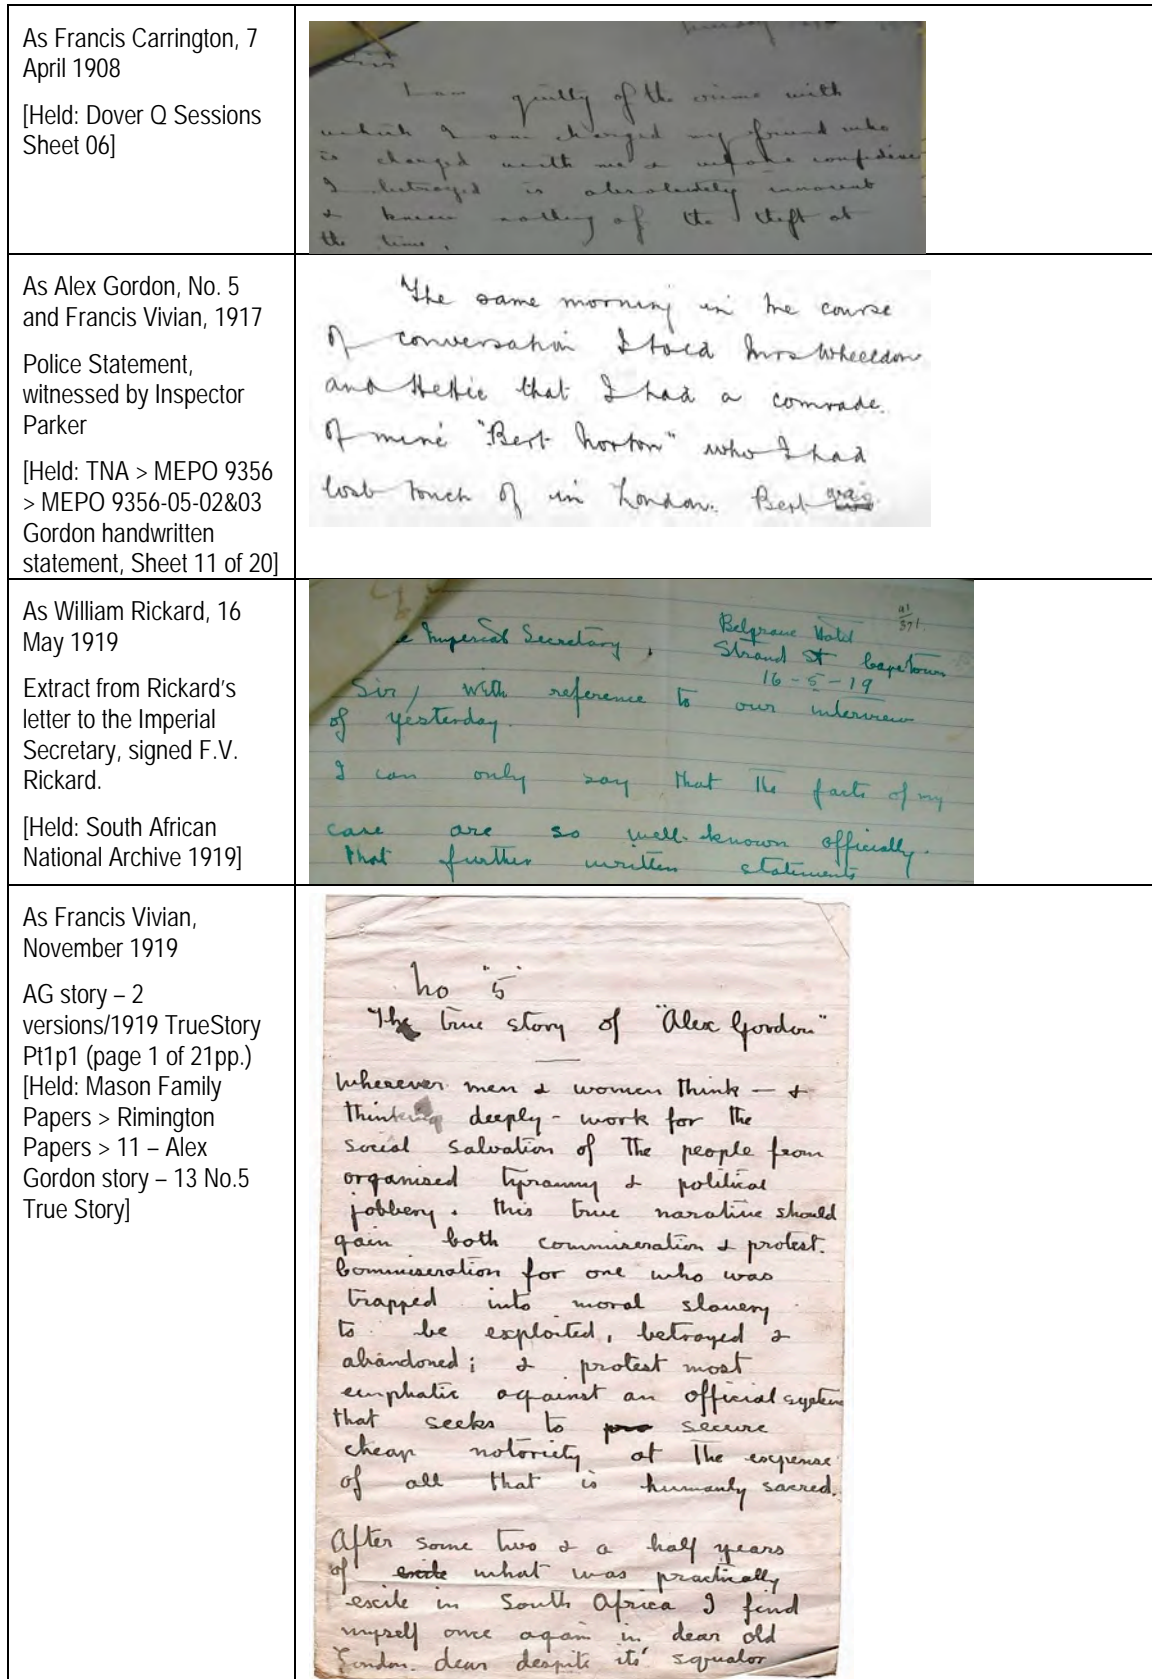 As Francis Carrington, 7
April 1908
[Held: Dover Q Sessions
Sheet 06]
I am guilty of the crime with
which I am charged my friend who
is charged with me & whose confidence
I betrayed is absolutely innocent
& knew nothing of the theft at
the time.
As Alex Gordon, No. 5
and Francis Vivian, 1917
Police Statement,
witnessed by Inspector
Parker
[Held: TNA > MEPO 9356
> MEPO 9356-05-02&03
Gordon handwritten
statement, Sheet 11 of 20]
The same morning in the course
of conversation I told Mrs Wheeldon
and Hettie that I had a comrade
of mine "Bert Norton" who I had
lost touch of in London. Bert was
As William Rickard, 16
May 1919
Extract from Rickard's
letter to the Imperial
Secretary, signed F.V.
Rickard.
[Held: South African
National Archive 1919]
Imperial Secretary,
Belgrave Hotel
Strand St Capetown
16-5-19
Sir, with reference to our interview
of yesterday.
I can only say that the facts of my
case are so well-known officially.
that further written statements
As Francis Vivian,
November 1919
AG story – 2
versions/1919 TrueStory
Pt1p1 (page 1 of 21pp.)
[Held: Mason Family
Papers > Rimington
Papers > 11 – Alex
Gordon story – 13 No.5
True Story]
No "5"
The true story of "Alex Gordon"
Wherever men & women think — &
thinking deeply - work for the
social salvation of the people from
organised tyranny & political
jobbery. this true narative should
gain both commiseration & protest.
Commiseration for one who was
trapped into moral slavery
to be exploited, betrayed &
abandoned; & protest most
emphatic against an official system
that seeks to pro secure
cheap notoriety at the expense
of all that is humanly sacred.
After some two & a half years
of exile what was practically
exile in South Africa I find
myself once again in dear old
London. dear despite its' squalor